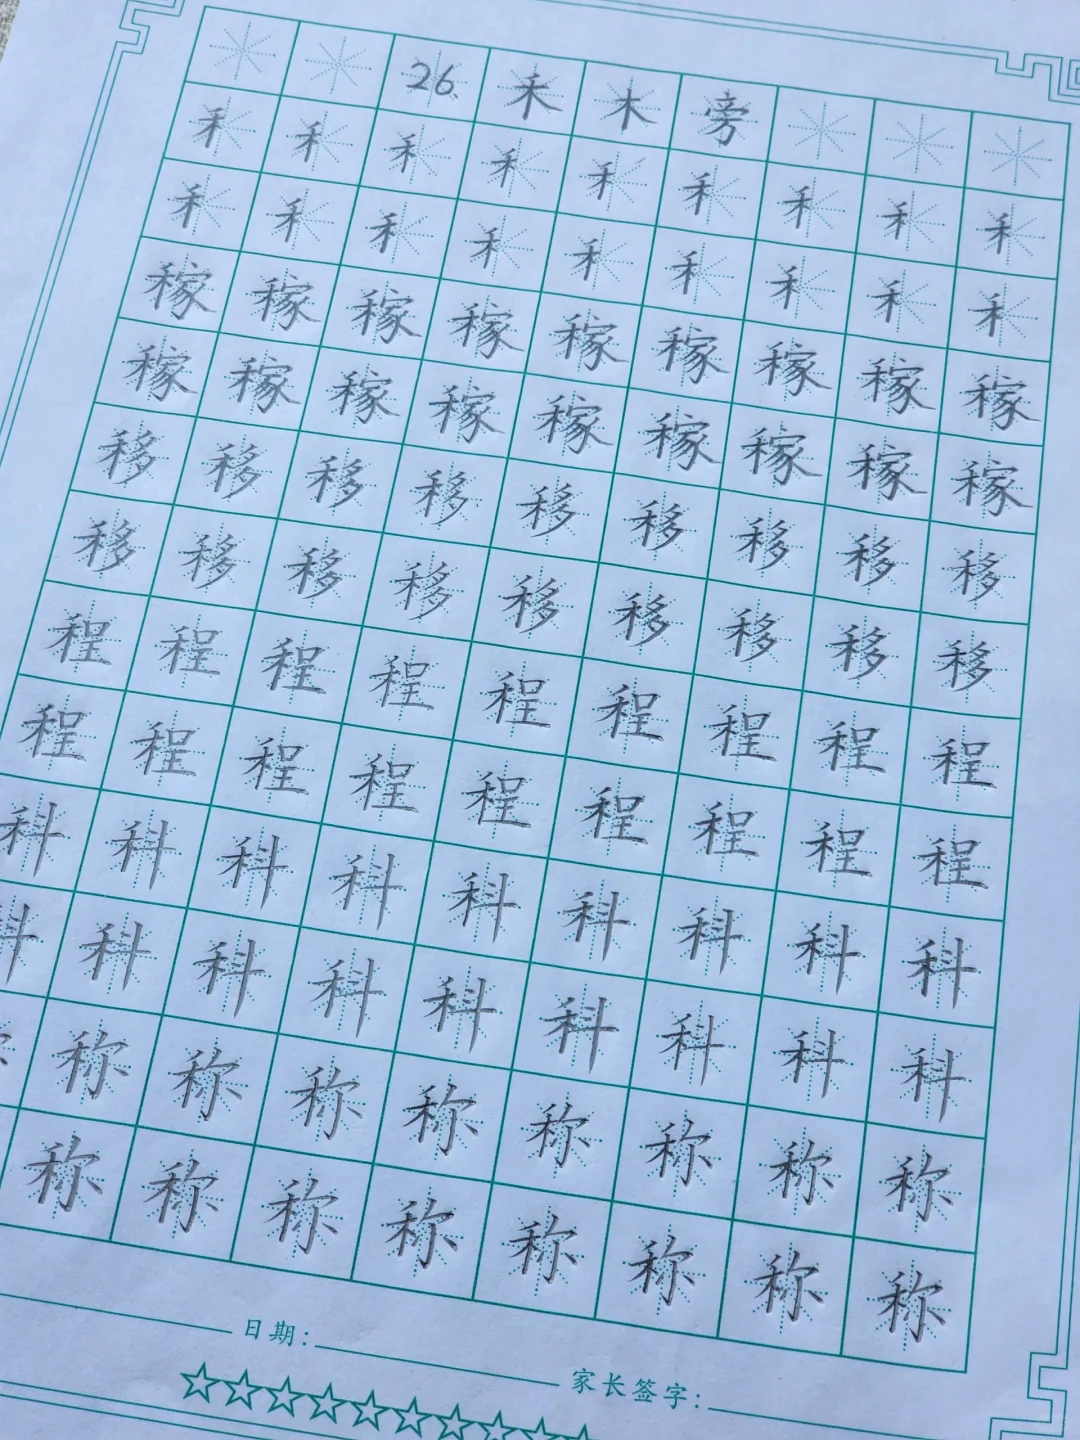 26、禾木旁
禾禾禾禾禾禾禾禾禾
禾禾禾禾禾禾禾禾禾
稼稼稼稼稼稼稼稼稼
稼稼稼稼稼稼稼稼稼
移移移移移移移移移
移移移移移移移移移
程程程程程程程程程
程程程程程程程程程
科科科科科科科科科
科科科科科科科科科
称称称称称称称称
称称称称称称称称
日期：
家长签字：